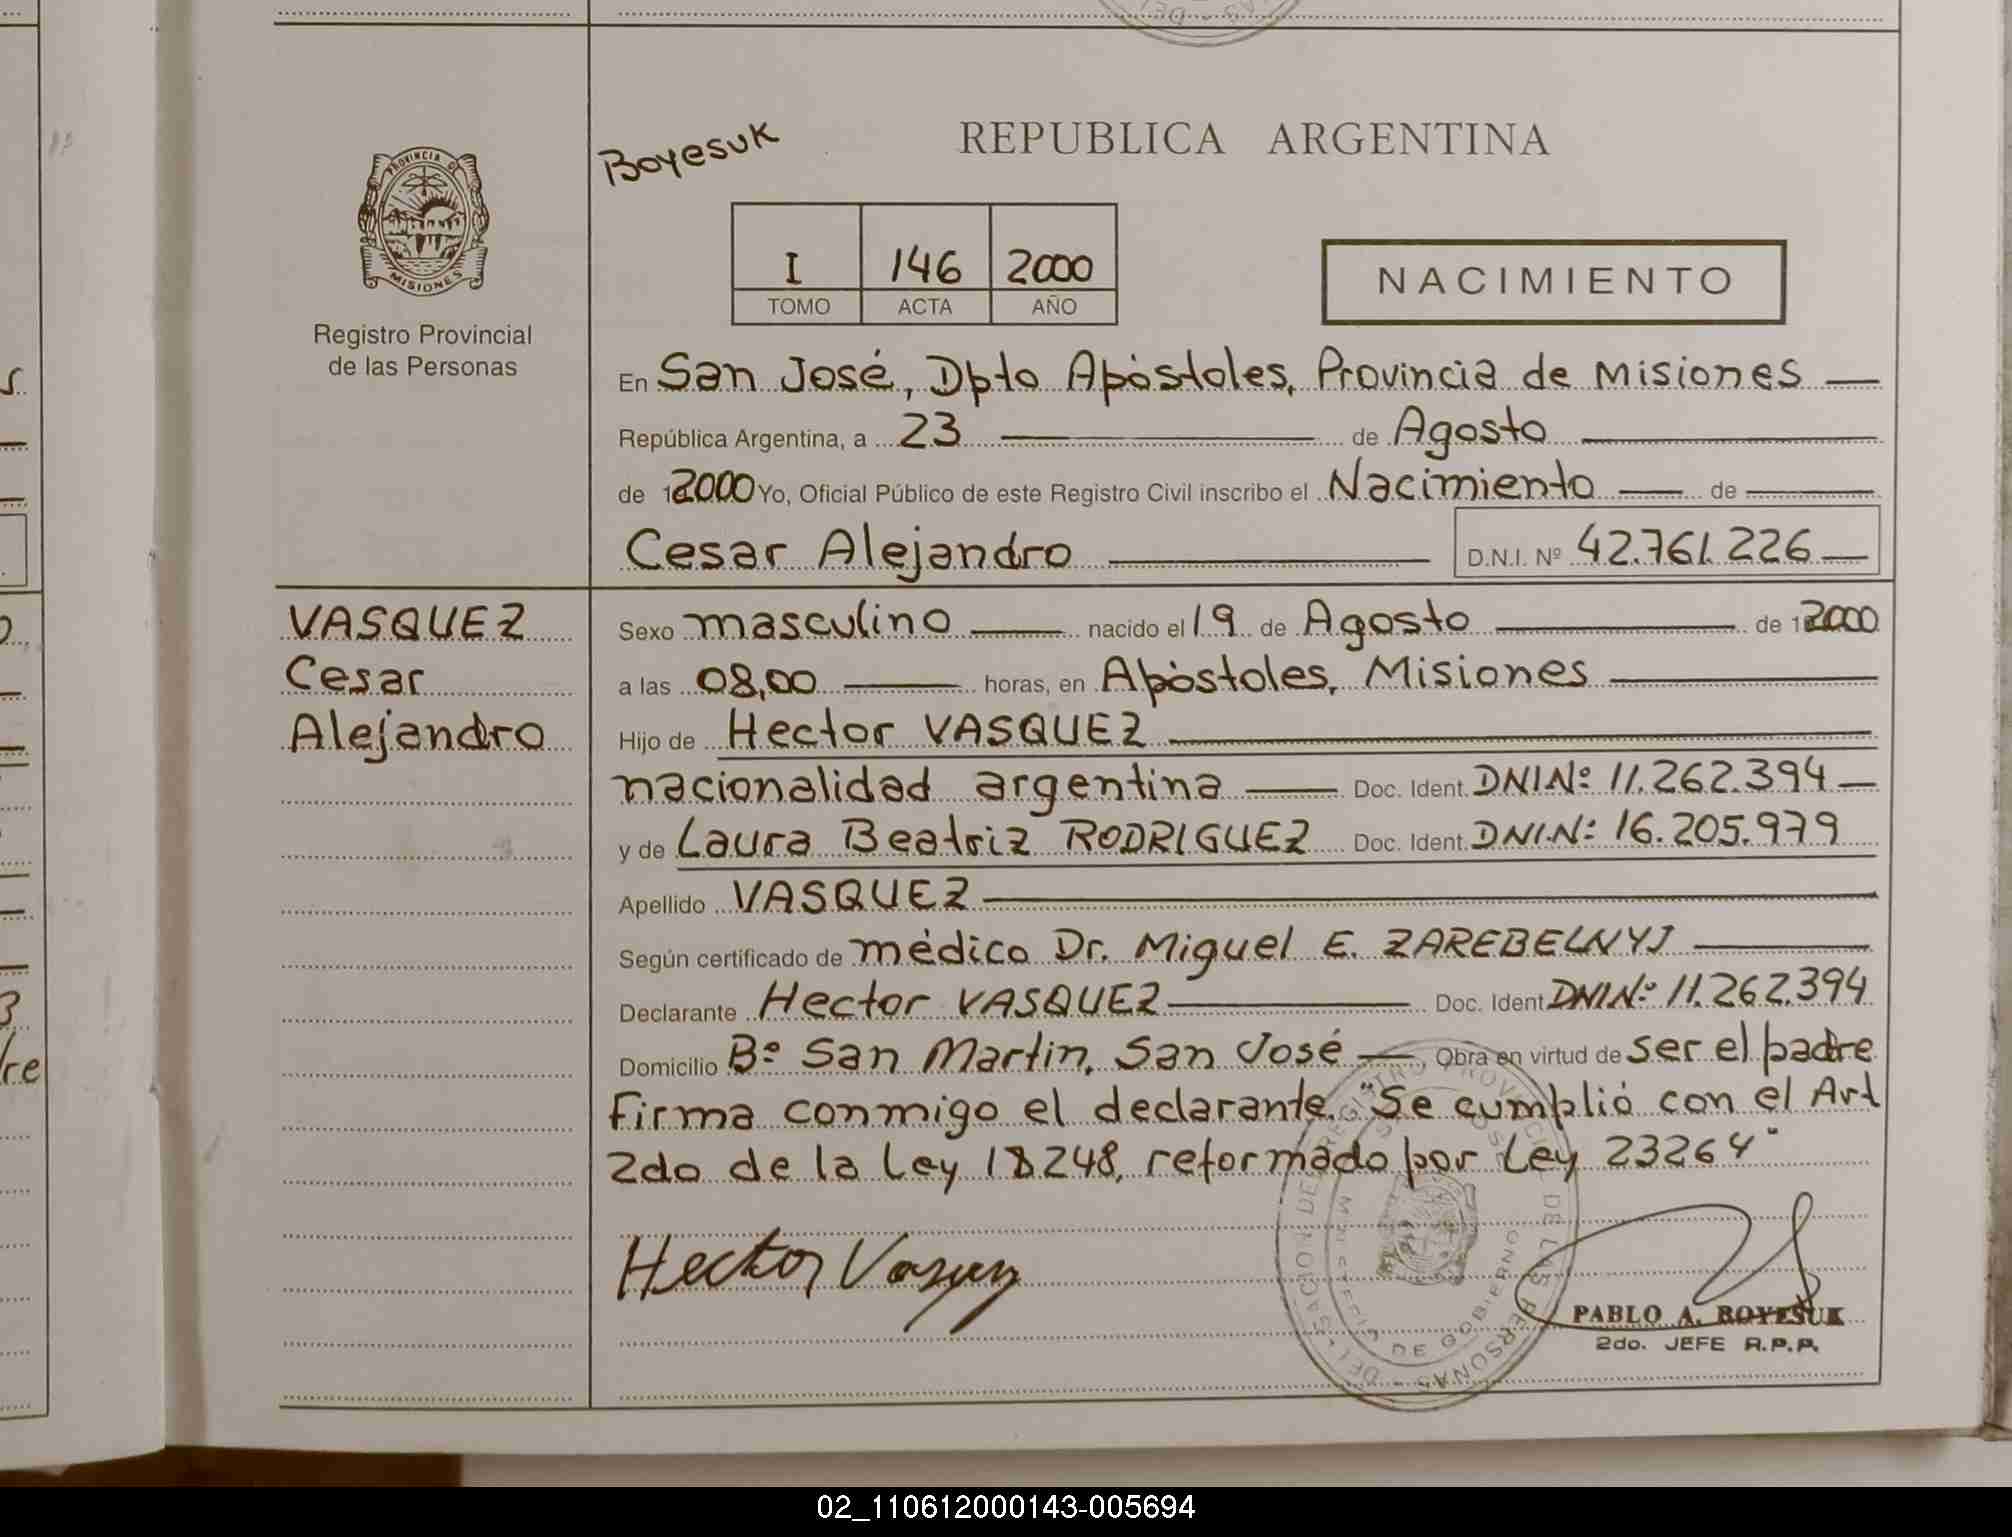 Boyesuk
REPUBLICA ARGENTINA
PROVINCIA DE
MISIONES
Registro Provincial
de las Personas
I 146 2000
TOMO ACTA AÑO
NACIMIENTO
En San José, Dpto Apóstoles, Provincia de Misiones
República Argentina, a 23 de Agosto
de 2000 Yo, Oficial Público de este Registro Civil inscribo el Nacimiento de
Cesar Alejandro D.N.I. Nº 42.761.226
VASQUEZ
Cesar
Alejandro
Sexo masculino nacido el 19 de Agosto de 2000
a las 08,00 horas, en Apóstoles, Misiones
Hijo de Hector VASQUEZ
nacionalidad argentina Doc. Ident. DNINº 11.262.394
y de Laura Beatriz RODRIGUEZ Doc. Ident. DNI.Nº 16.205.979
Apellido VASQUEZ
Según certificado de médico Dr. Miguel E. ZAREBELNYJ
Declarante Hector VASQUEZ Doc. Ident DNINº 11.262.394
Domicilio Bº San Martin, San José Obra en virtud de ser el padre
Firma conmigo el declarante. "Se cumplió con el Art
2do de la Ley 18248, reformado por Ley 23264"
Hector Vasquez
PABLO A. BOYESUK
2do. JEFE R.P.P.
02_110612000143-005694